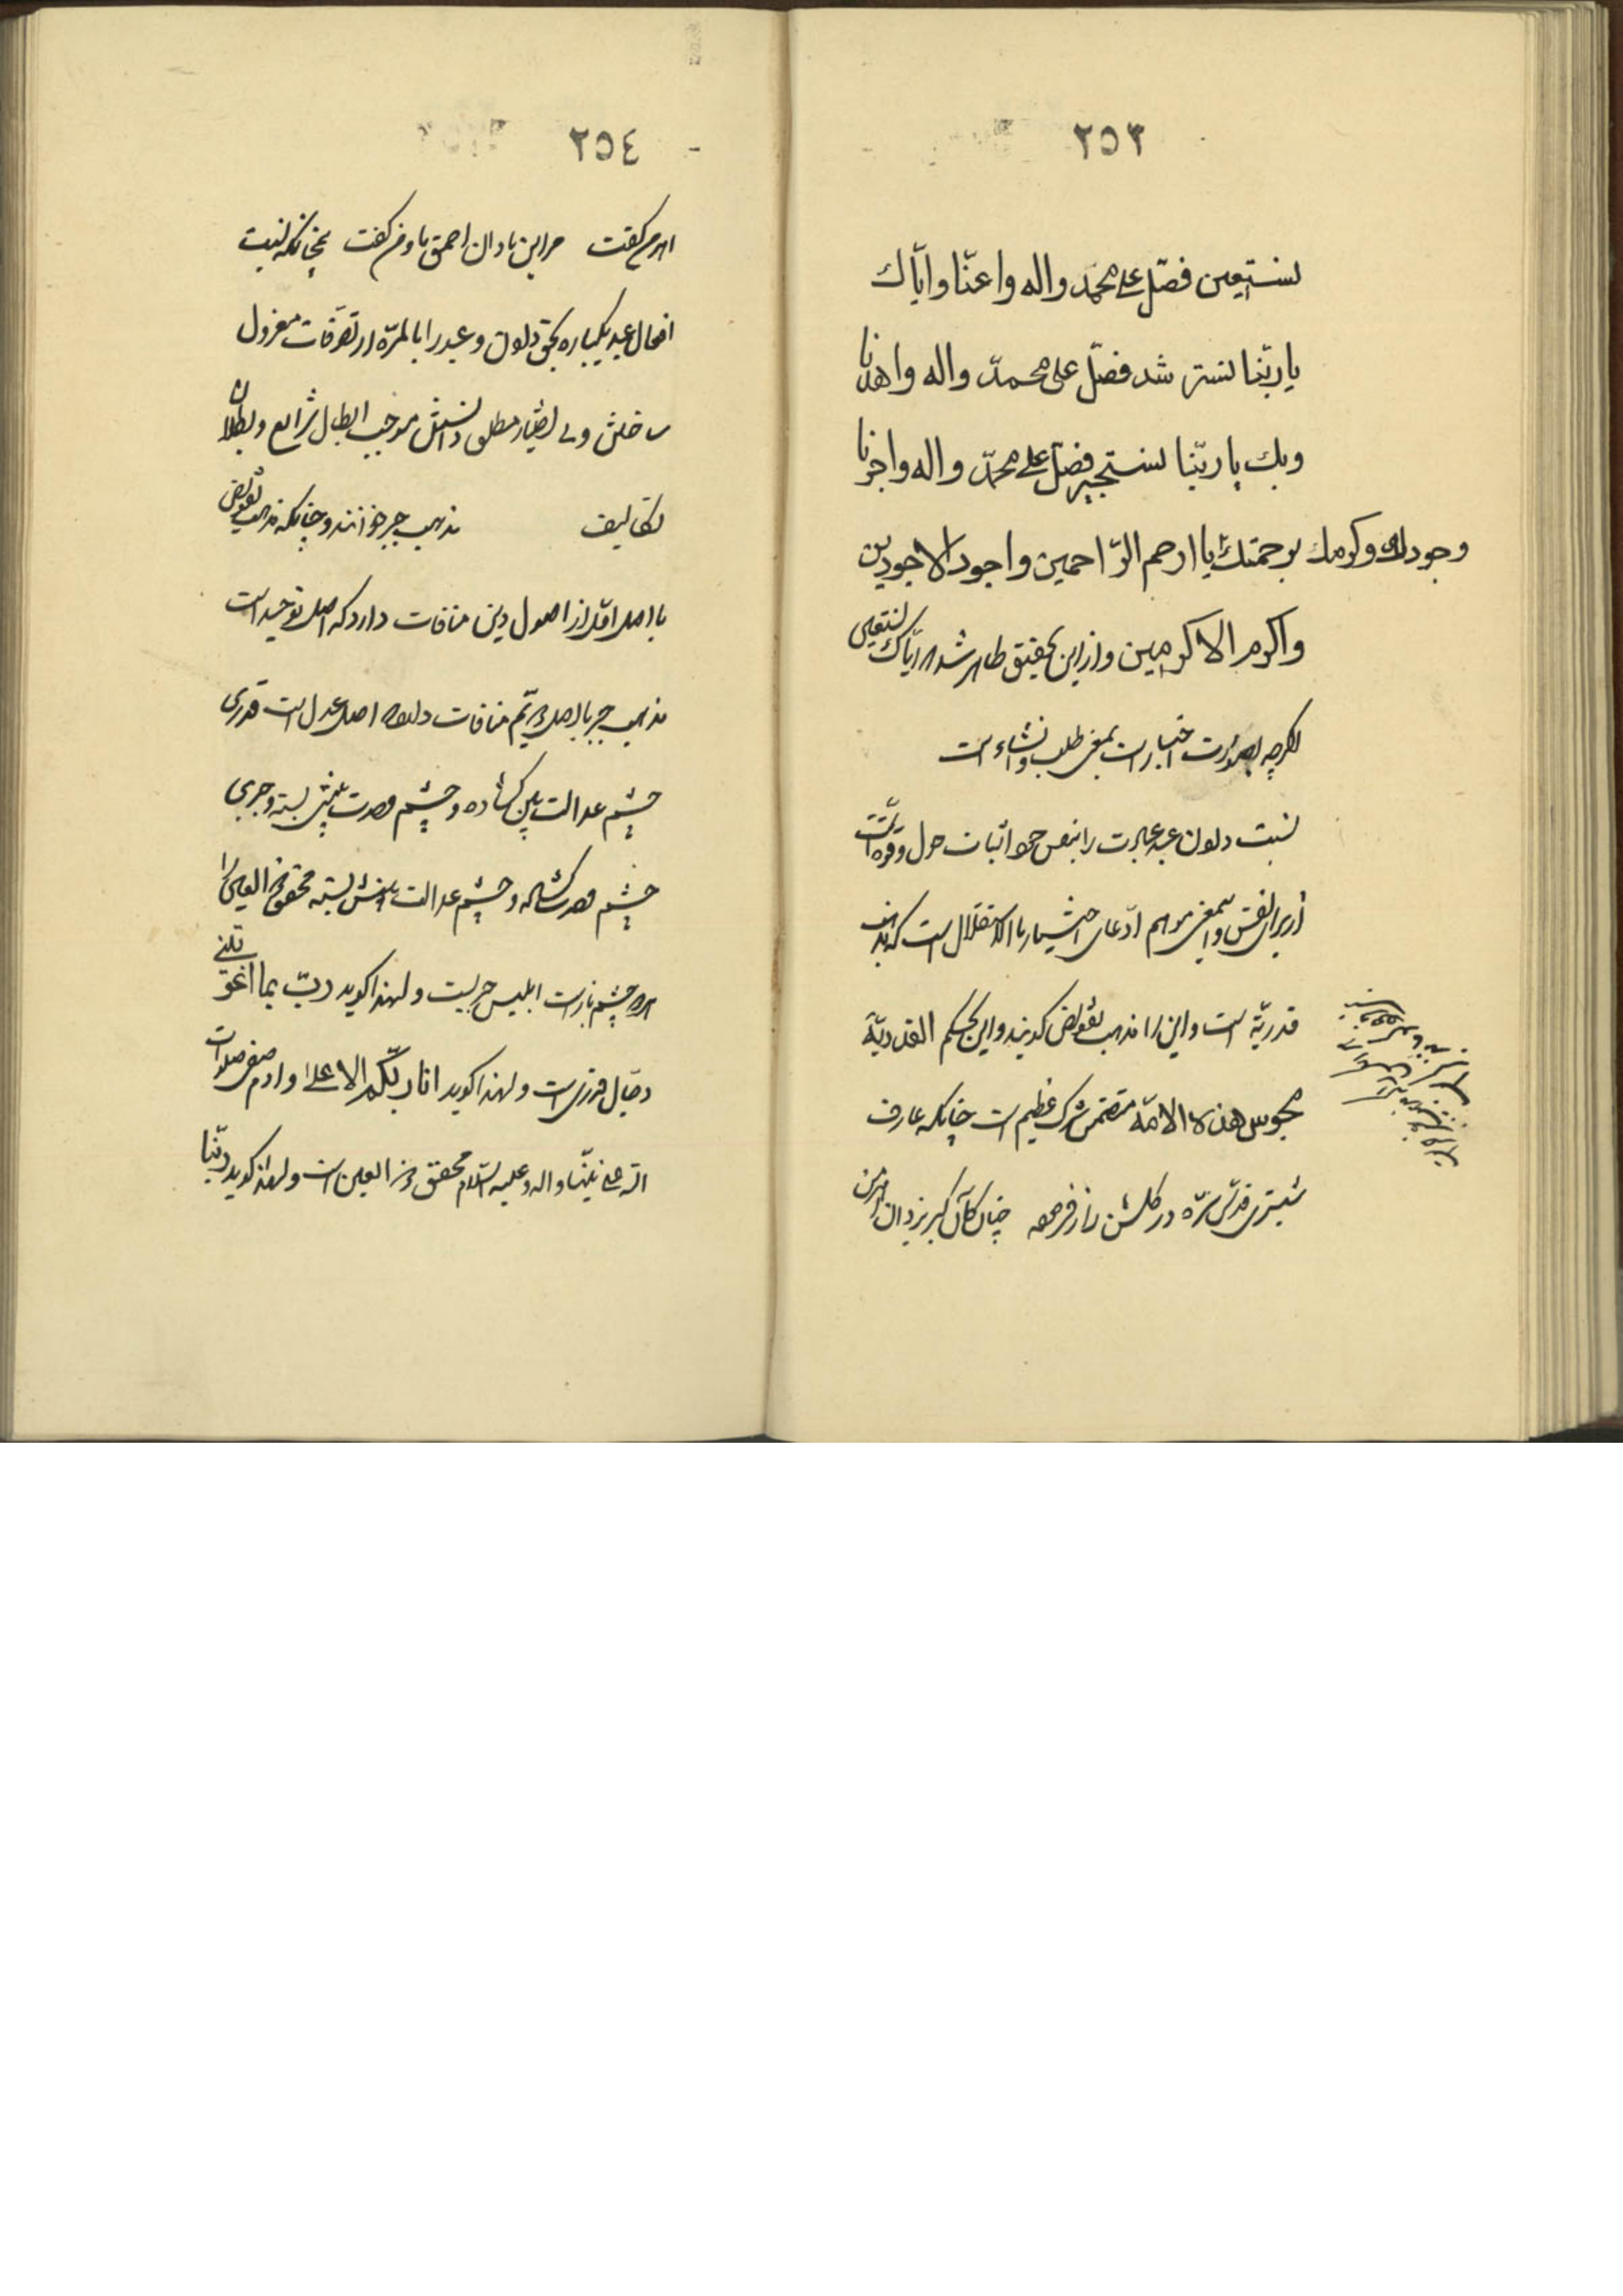 ٢٥٣
نستعين فصل على محمد واله واعنا واياك
يا ربنا نسترشد فصل على محمد واله واهدنا
وبك يا ربنا نستجير فصل على محمد واله واجرنا
وجودك وكرمك برحمتك يا ارحم الراحمين واجود الاجودين
واكرم الاكرمين وازاین تحقیق ظاهر شد که ایاك نستعین
اکرچه بصورت اخبار است بمعنی طلب وانشاء است
نسبت دادن عبد عبادت را بنفس خود اثبات حول وقوه است
از برای نفس واین معنی موهم ادعای اختیار بالاستقلال است که مذهب
قدریه است واین را مذهب تفویض کویند واین بحکم القدرية
مجوس هذه الامة متضمن شرک عظیم است چنانکه عارف
شبستری قدس سره در کلشن راز فرموده چنان کان کبر یزدان واهرمن
٢٥٤
کفت مر این نادان احمق ما ومن کفت همچنانکه نسبت
افعال عبد یکباره بحق دادن وعبد را بالمره از تصرفات معزول
ساختن وبی اختیار مطلق دانستن موجب ابطال شرایع وبطلان
تکالیف مذهب جبر خوانند وچنانکه مذهب تفویض
با اصل اول از اصول دین منافات دارد که اصل توحید است
مذهب جبر با اصل دویم منافات دارد که اصل عدل است قدری
چشم عدالت بین کشاده وچشم وحدت بینش بسته وجبری
چشم وحدت کشاده وچشم عدالت بینش بسته محقق ذو العینین را
هر دو چشم باز است ابلیس جبریست ولهذا کوید رب بما اغويتني
دجال قدری است ولهذا کوید انا ربكم الاعلى وادم صفی صلوات
الله على نبينا واله وعليه السلام محقق ذو العینین است ولهذا کوید ربنا